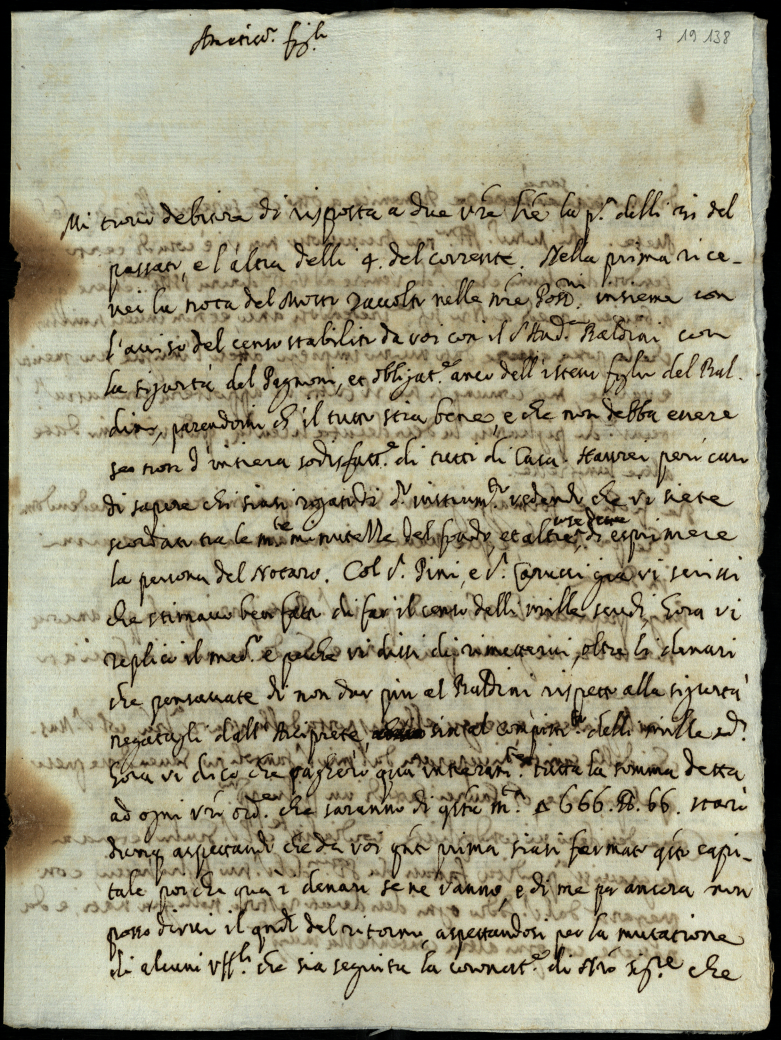 7 19 138
Amatiss.o figl.o
Mi trovo debitore di risposta a due v're l're la p.a delli 21 del
passato, e l'altra delli 4. del corrente. Nella prima rice-
vei la nota del Mosto raccolto nelle n're Poss.ni insieme con
l'auiso del censo stabilito da voi con il S.r And.a Baldini con
la sigurtà del Pagnoni, et obligat.e anco dell'istessi figli del Bal-
dini, parendomi ch'il tutto stia bene, e che non debba essere
se non d'intiera sodisfatt.e di tutti di Casa. Haurei però caro
di sapere chi siasi rogato di d.o instrum.to vedendo che vi siete
scordato tra le m.te minutezze del fondo, et altre cose dette di esprimere
la persona del Notaro. Col S.r Pini, e S.r Carucci già vi scrissi
che stimavo ben fatto di far il censo delli mille scudi, hora vi
replico il med.o e perche vi dissi di rimettervi, oltre li denari
che pensavate di non dar piu al Baldini rispetto alla sigurtà
negatagli dall'Arciprete, sin al compim.to delli mille sd.i
hora vi dico che pagherò quà intieram.te tutta la somma detta
ad ogni v'ro ord.e che saranno di q'sta m.ta 666. 66. starò
dunq aspettando che da voi q'nto prima siasi fermato q'sto capi-
tale, poiche quà i denari se ne vanno, e di me per ancora non
posso dirvi il q'ndo del ritorno, aspettandosi per la mutatione
di alcuni uff.li che sia seguita la coronat.e di N'ro Sig.re che